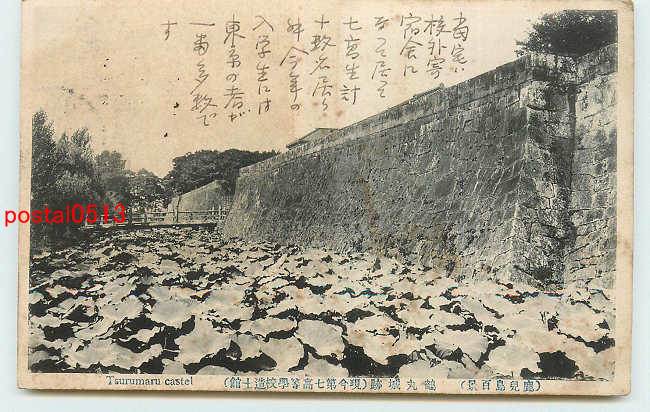 当宅ハ
校外寄
宿舎に
なって居て
七高生計
十数名居り
升今年の
入学生には
東京の者が
一番多数で
す
postal0513
Tsurumaru castel
(館士造校學等高七第今現)跡城丸鶴
(景百島兒鹿)